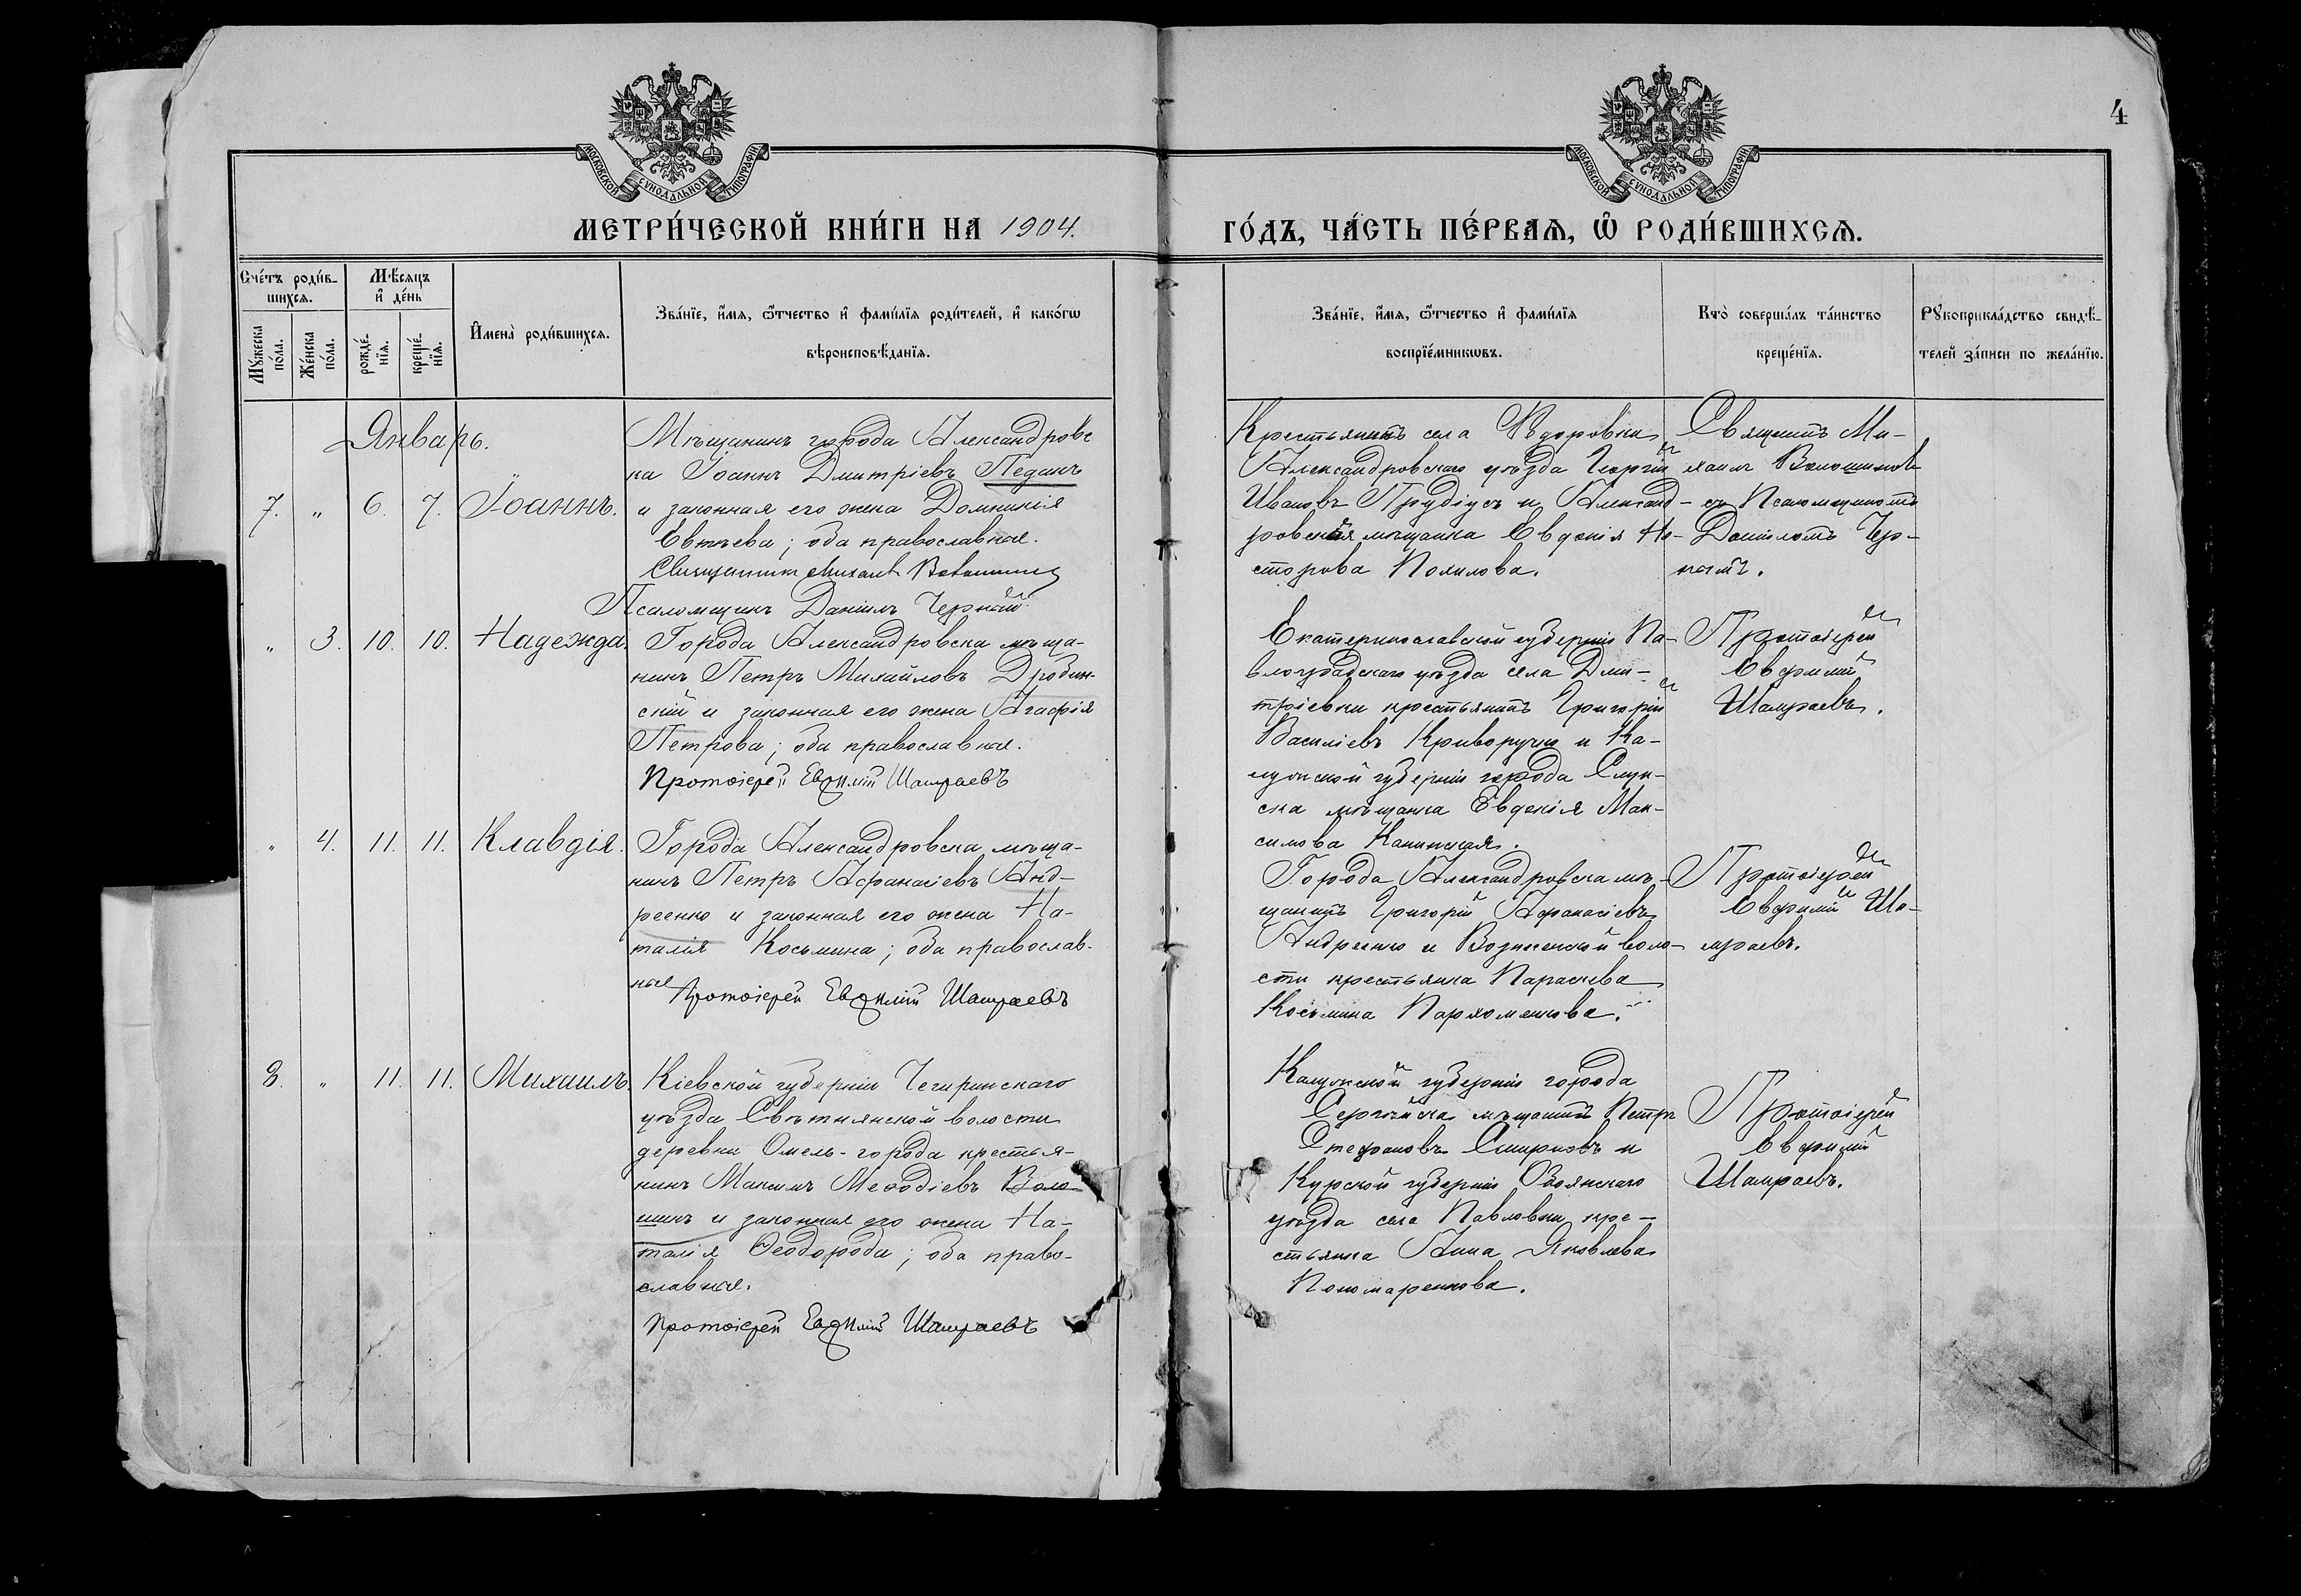 4
МОСКОВСКОЙ СУНОДАЛЬНОЙ ТИПОГРАФІИ
МОСКОВСКОЙ СУНОДАЛЬНОЙ ТИПОГРАФІИ
МЕТРИ́ЧЕСКОЙ КНИ́ГИ НА 1904.
ГО́ДЪ, ЧА́СТЬ ПЕ́РВАѦ, Ѡ РОДИ́ВШИХСѦ.
Сче́тъ роди́в-
шихсѧ.
Мꙋ́жеска по́ла.
Же́нска по́ла.
Мѣ́сѧцъ
и де́нь
рожде́-нїѧ.
креще́-нїѧ.
Имена̀ роди́вшихсѧ.
Зва́нїе, и́мѧ, ѻ́тчество и фами́лїѧ роди́телей, и како́гѡ
вѣроисповѣ́данїѧ.
Зва́нїе, и́мѧ, ѻ́тчество и фами́лїѧ
воспрїе́мникѡвъ.
Кто̀ соверша́лъ та́инство
креще́нїѧ.
Рꙋкоприкла́дство свидѣ́-
телей за́писи по жела́нїю.
Январь.
7. " 6. 7. Іоаннъ.
Мѣщанинъ города Александровс
ка Іоаннъ Дмитріевъ Педанъ
и законная его жена Домникія
Евтѣева; оба православные.
Священникъ Михаилъ Волошинъ
Псаломщикъ Даніилъ Черный
Крестьянинъ села Ѳедоровки
Александровскаго уѣзда Георгій
Ивановъ Прудіусъ и Александ-
ровская мѣщанка Евдокія Не-
сторова Похилова.
Священникъ Ми-
хаилъ Волошиновъ
съ Псаломщикомъ
Даніиломъ Чер-
нымъ.
" 3. 10. 10. Надежда.
Города Александровска мѣща-
нинъ Петръ Михайловъ Дробин-
скій и законная его жена Агафія
Петрова; оба православные.
Протоіерей Евѳимій Шамраевъ
Екатеринославской губерніи Па-
влоградскаго уѣзда села Дми-
тріевки крестьянинъ Григорій
Василіевъ Криворучко и Ка-
лужской губерніи города
ска мѣщанка Евдокія Мак-
симова
Протоіерей
Евѳимій
Шамраевъ.
" 4. 11. 11. Клавдія.
Города Александровска мѣща-
нинъ Петръ Афанасіевъ Анд-
реенко и законная его жена На-
талія Косьмина; оба православ-
ные
Протоіерей Евѳимій Шамраевъ
Города Александровска мѣ-
щанинъ Григорій Афанасіевъ
Андреенко и Вознесенской воло-
сти крестьянка Параскева
Косьмина Пархоменкова.
Протоіерей
Евѳимій Ша-
мраевъ.
8. " 11. 11. Михаилъ
Кіевской губерніи Чигиринскаго
уѣзда Свѣтилянской волости
деревни Омель-города крестья-
нинъ Максимъ Меѳодіевъ Воло-
шинъ и законная его жена На-
талія Ѳеодорова; оба право-
славные.
Протоіерей Евѳимій Шамраевъ
Калужской губерніи города
мѣщанинъ Петръ
Стефановъ Смирновъ и
Курской губерніи Обоянскаго
уѣзда села Павловки кре-
стьянка Анна Яковлева
Пономаренкова.
Протоіерей
Евѳимій
Шамраевъ.